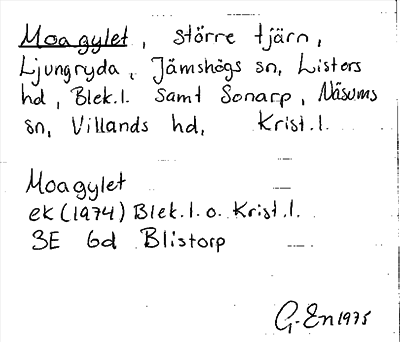 Moagylet, större tjärn,
Ljungryda, Jämshögs sn, Listers
hd, Blek.l. samt Sonarp, Näsums
sn, Villands hd, Krist.l.
Moagylet
ek (1974) Blek.l. o. Krist.l.
3E 6d Blistorp
G. En 1975